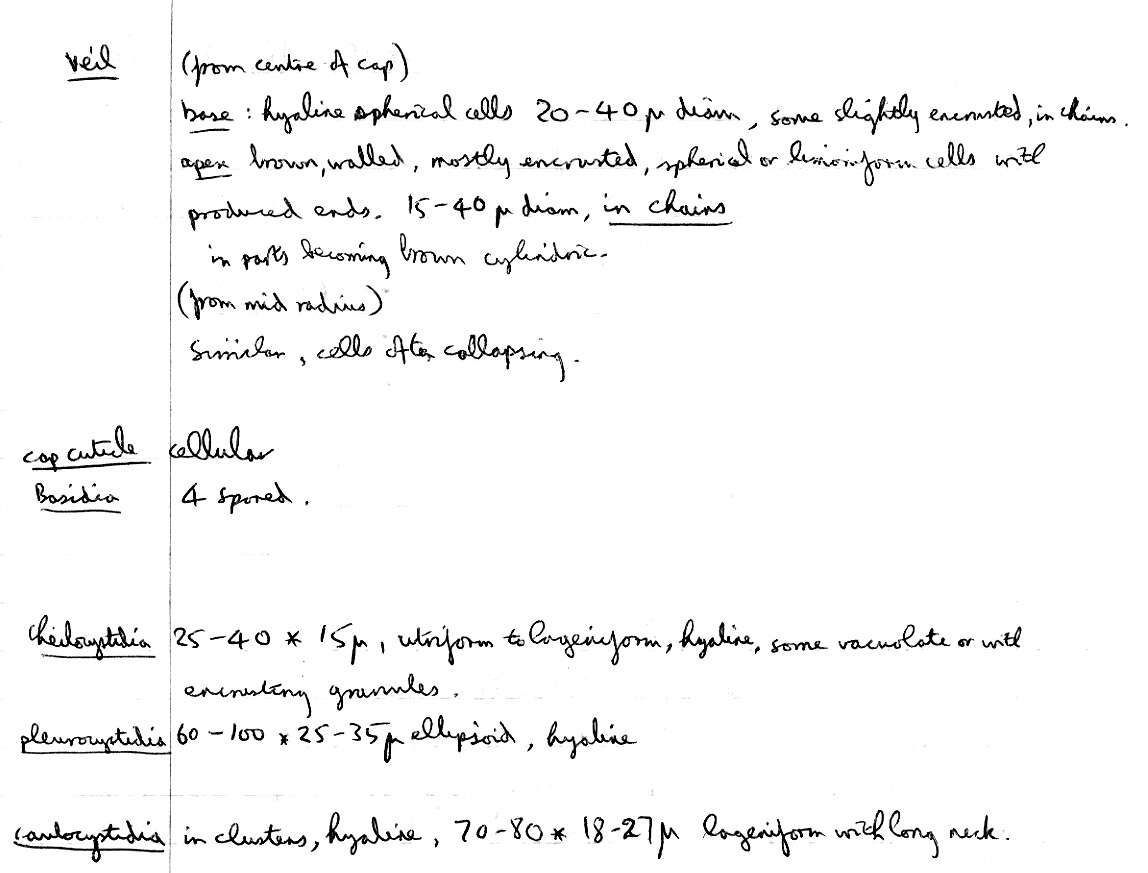 veil (from centre of cap)
base : hyaline spherical cells 20-40 μ diam, some slightly encrusted, in chains.
apex brown, walled, mostly encrusted, spherical or limoniform cells with
produced ends. 15-40 μ diam, in chains
in parts becoming brown cylindric.
(from mid radius)
Similar, cells often collapsing.
cap cuticle cellular
Basidia 4 spored.
Cheilocystidia 25-40 * 15μ, utriform to lageniform, hyaline, some vacuolate or with
encrusting granules.
pleurocystidia 60-100 * 25-35μ ellipsoid, hyaline
caulocystidia in clusters, hyaline, 70-80 * 18-27μ lageniform with long neck.